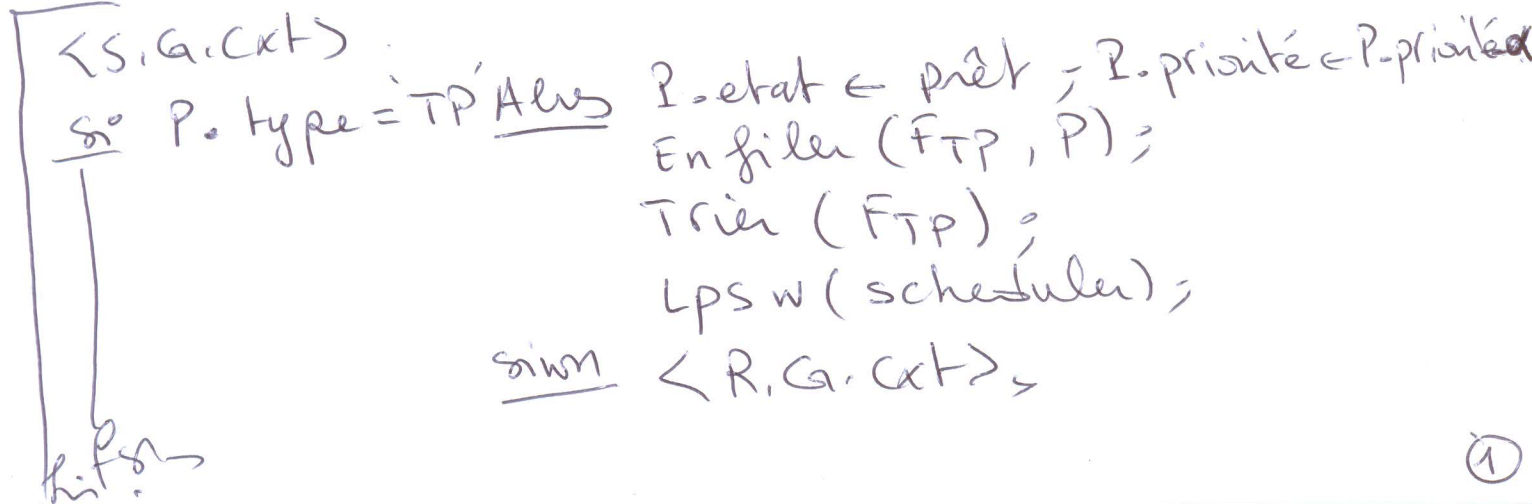 <S.G.Cxt>
si P.type = 'TP' Alors P.etat ← prêt ; P.priorité ← P.priorité α
Enfiler (FTP, P) ;
Trier (FTP) ;
LPSW (scheduler) ;
sinon <R.G.Cxt> ;
fsi
fin.
①